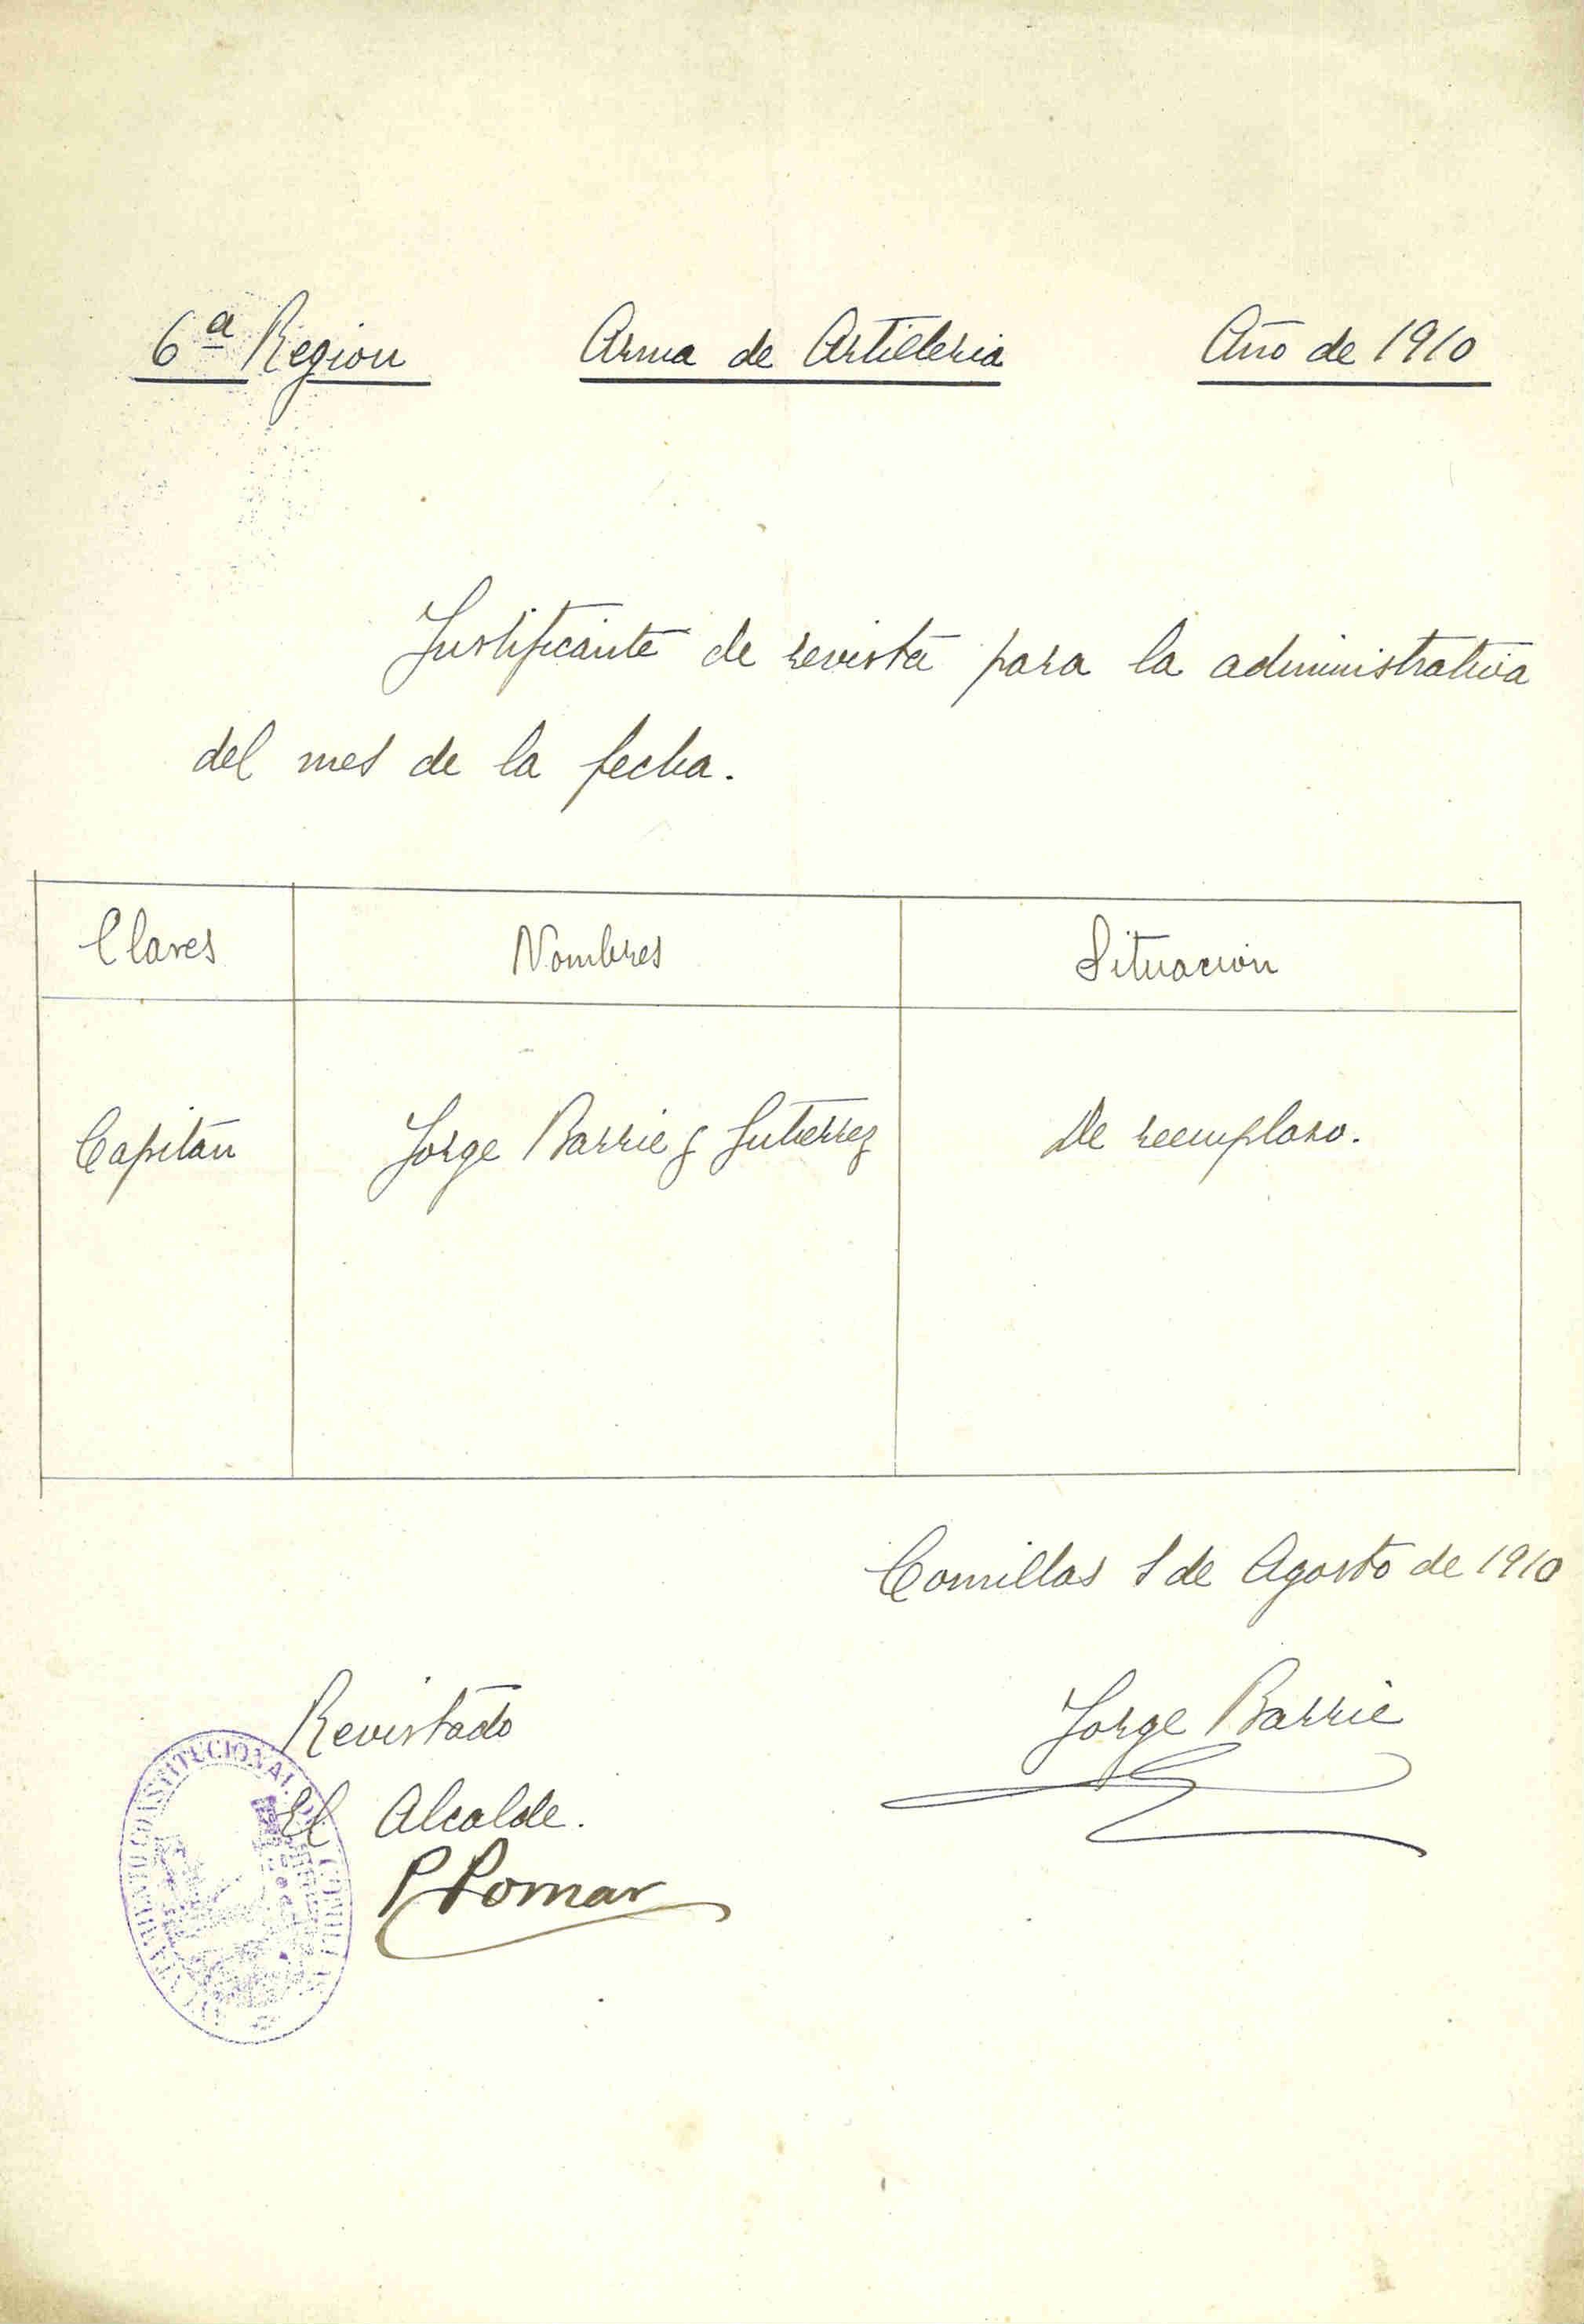 6ª Region Arma de Artilleria Año de 1910
Justificante de revista para la administrativa
del mes de la fecha.
Clases Nombres Situacion
Capitán Jorge Barrie y Gutierrez De reemplazo.
Comillas 1 de Agosto de 1910
Revistado
Jorge Barrie
El Alcalde.
P Pomar
CONSTITUCIONAL DE COMILLAS